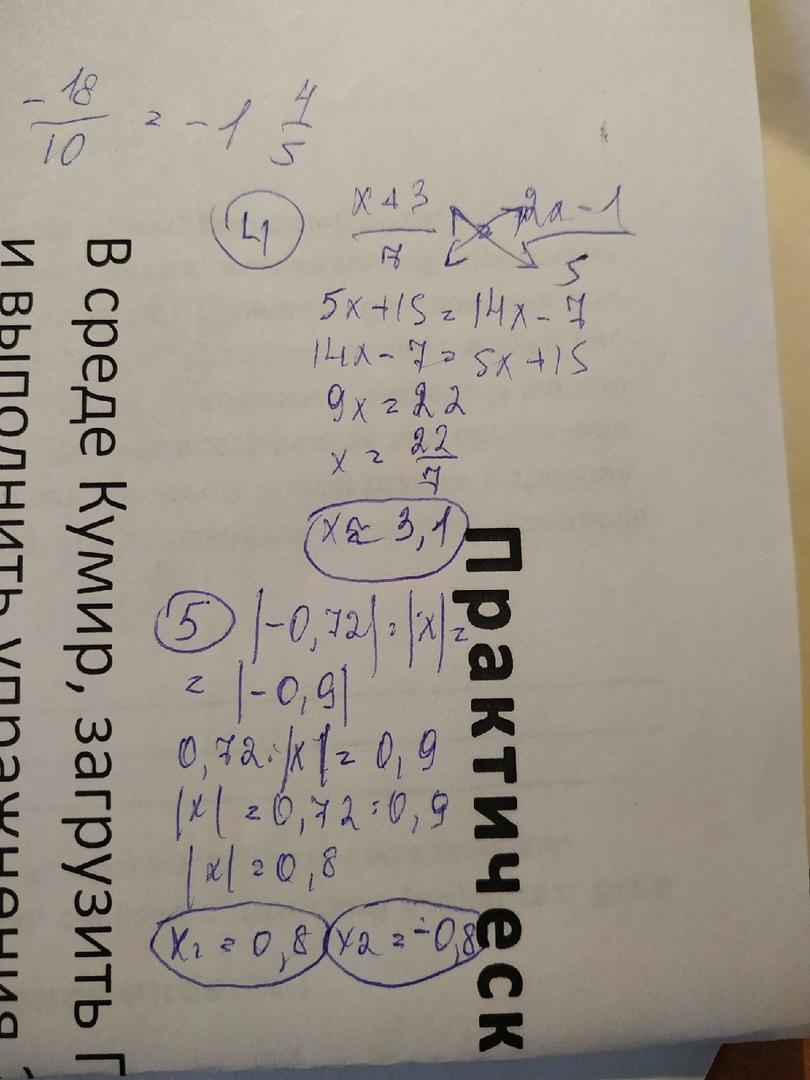 -18/10 = -1 4/5
4 x+3/7 = 2x-1/5
5x+15=14x-7
14x-7=5x+15
9x=22
x=22/7
x≈3,1
5 |-0,72|:|x|=
=|-0,9|
0,72:|x|=0,9
|x|=0,72:0,9
|x|=0,8
x1=0,8 x2=-0,8
Практическ
В среде Кумир, загрузить
и выполнить упражнения